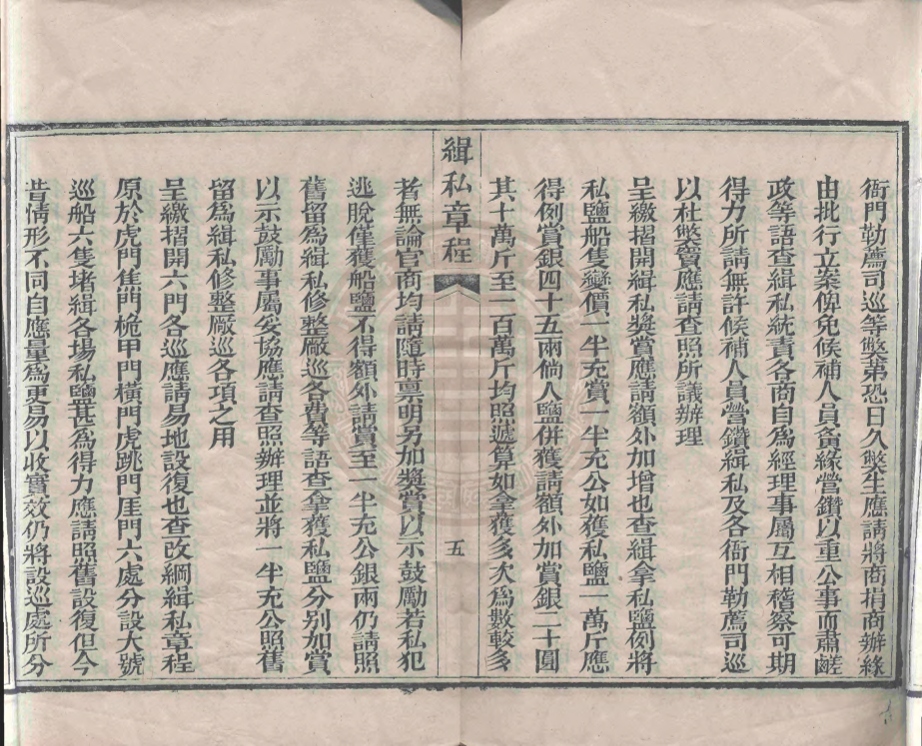 衙門勒薦司巡等獘第恐日久獘生應請將商捐商辦緣
由批行立案俾免候補人員夤緣營鑽以重公事而肅鹺
政等語查緝私統責各商自爲經理事屬互相稽察可期
得力所請無許候補人員營鑽緝私及各衙門勒薦司巡
以杜獘竇應請查照所議辦理
呈繳摺開緝私獎賞應請額外加增也查緝拿私鹽例將
私鹽船隻變價一半充賞一半充公如獲私鹽一萬斤應
得例賞銀四十五兩倘人鹽併獲請額外加賞銀二十圓
其十萬斤至一百萬斤均照遞算如拿獲多次爲數較多
緝私章程
五
者無論官商均請隨時禀明另加獎賞以示鼓勵若私犯
逃脫僅獲船鹽不得額外請賞至一半充公銀兩仍請照
舊留爲緝私修整厰巡各費等語查拿獲私鹽分別加賞
以示鼓勵事屬妥協應請查照辦理並將一半充公照舊
留爲緝私修整厰巡各項之用
呈繳摺開六門各巡應請易地設復也查改綱緝私章程
原於虎門焦門桅甲門橫門虎跳門厓門六處分設大號
巡船六隻堵緝各場私鹽甚爲得力應請照舊設復但今
昔情形不同自應量爲更易以收實效仍將設巡處所分